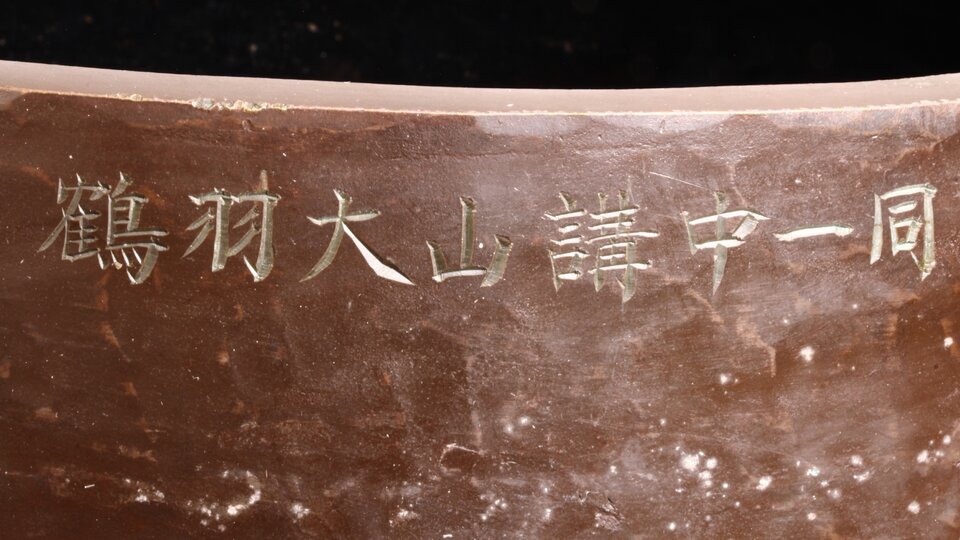 鶴羽大山講中一同